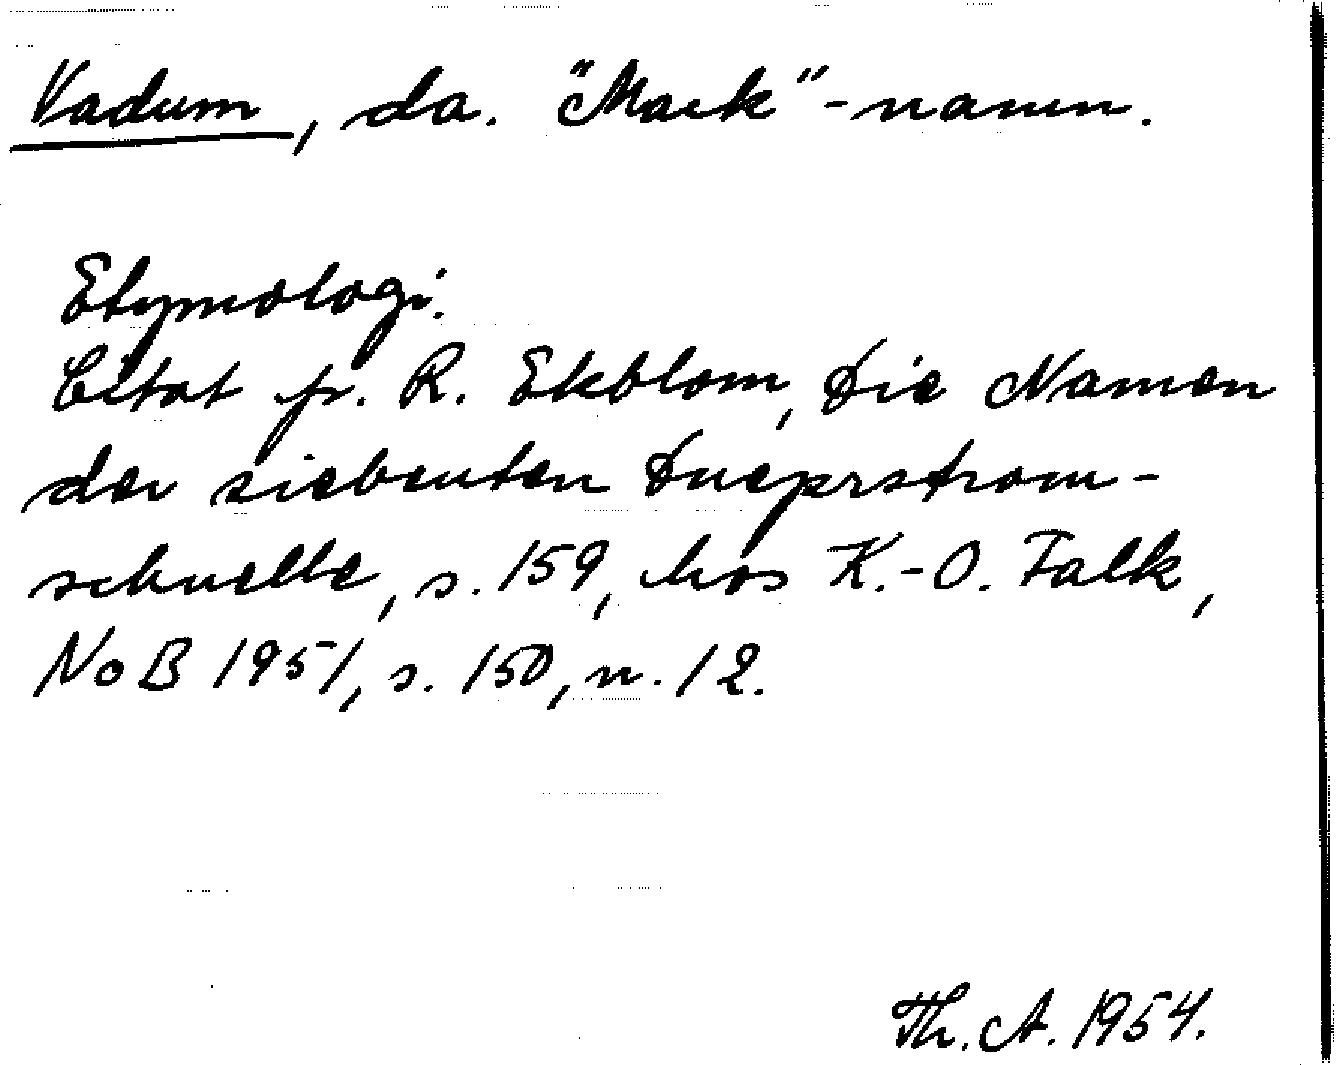 Vadum, da. "Mark"-namn.
Etymologi.
Citat fr. R. Ekblom, Die Namen
der siebenten Dneprstrom-
schnelle, s. 159, hos K.-O. Falk,
NoB 1951, s. 150, n. 12.
Th. A. 1954.